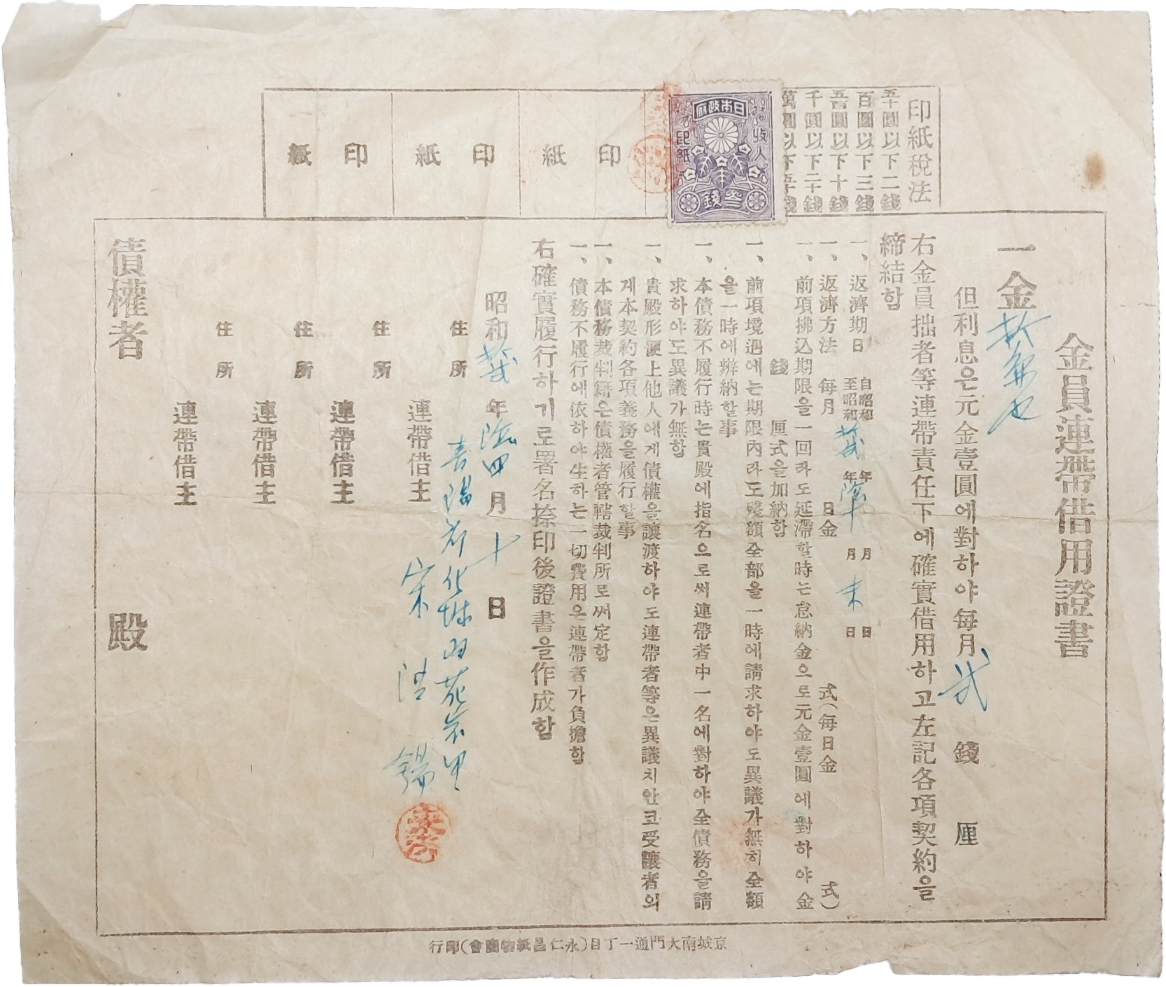 金員連帶借用證書
一金
但利息은元金壹圓에對하야每月 貳 錢 厘
右金員拙者等連帶責任下에確實借用하고左記各項契約을
締結함
一、返濟期日 自昭和 年 月 日
至昭和 年 陰 月 末 日
一、返濟方法 每月 日金 式(每日金 式)
一、前項拂込期限을一回라도延滯할時는怠納金으로元金壹圓에對하야金
錢 厘式을加納함
一、前項境遇에는期限內라도殘額全部을一時에請求하야도異議가無히全額
을一時에辨納할事
一、本債務不履行時는貴殿에指名으로써連帶者中一名에對하야全債務을請
求하야도異議가無함
一、貴殿形便上他人에게債權을讓渡하야도連帶者等은異議치안코受讓者의
게本契約各項義務을履行할事
一、本債務裁判籍은債權者管轄裁判所로써定함
一、債務不履行에依하야生하는一切費用은連帶者가負擔함
右確實履行하기로署名捺印後證書을作成함
昭和 年陰四月十日
住所
連帶借主 宋浩錫
住所
連帶借主
住所
連帶借主
住所
連帶借主
債權者 殿
印紙稅法
五十圓以下二錢
百圓以下三錢
五百圓以下十錢
千圓以下二十錢
萬圓以下五十錢
日本政府
收入印紙
參錢
印紙
印紙
印紙
京城南大門通一丁目(永仁昌紙物商會)印行